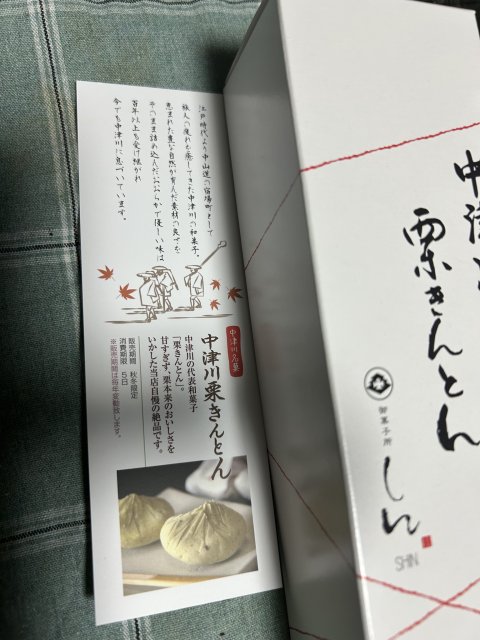 江戸時代より中山道の宿場町として
旅人の疲れを癒してきた中津川の和菓子。
恵まれた豊な自然が育んだ素材の良さを
そのまま詰め込んだおおらかで優しい味は
百年以上も受け継がれ
今でも中津川に息づいています。
中津川名菓
中津川栗きんとん
中津川の代表和菓子
「栗きんとん」。
甘すぎず、栗本来のおいしさを
いかした当店自慢の絶品です。
販売期間 秋冬限定
消費期限 5日
※販売期間は毎年変動致します。
中津川
栗きんとん
御菓子所
しん
SHIN